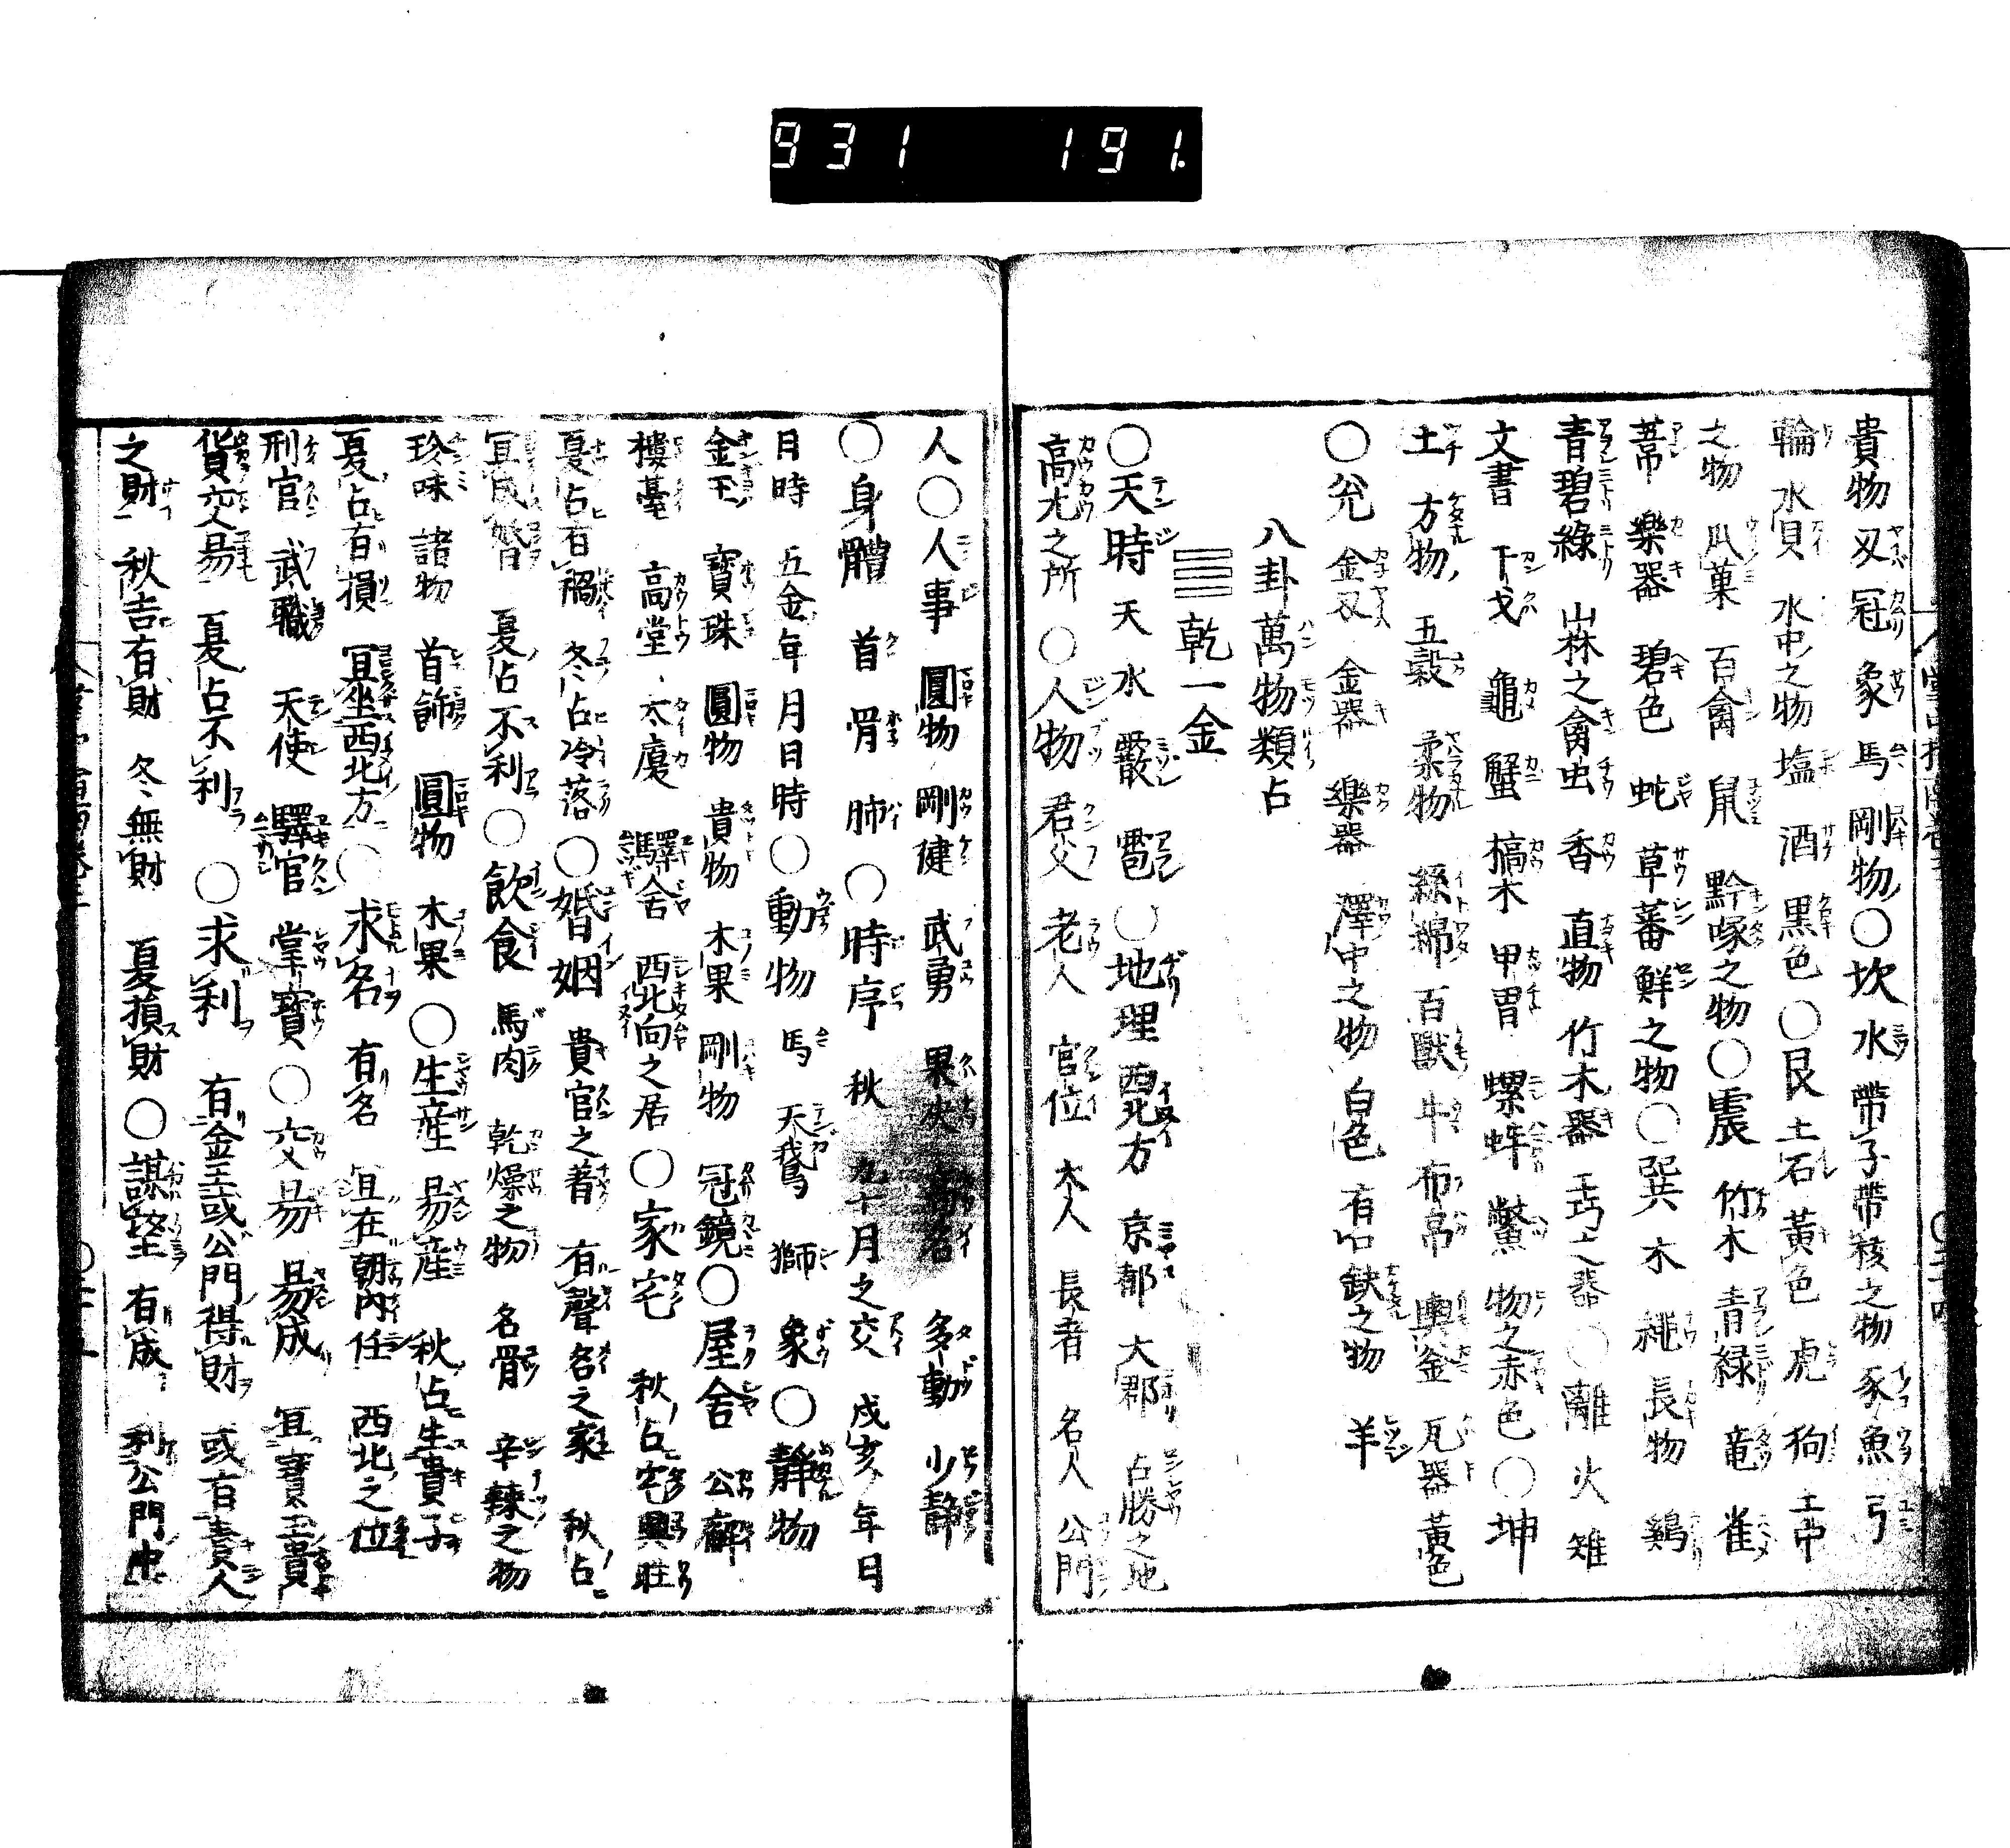 931 191
貴物 刄 冠 象 馬 剛物 ○坎 水 帶子帶核之物 豕 魚 弓
輪 水貝 水中之物 塩 酒 黒色 ○艮 土石 黃色 虎 狗 土中
之物 瓜菓 百禽 鼠 黔喙之物 ○震 竹木 青緑 竜 雀
樂器 碧色 蛇 草蕃鮮之物 ○巽 木 繩 長物 鷄
青碧綠 山林之禽虫 香 直物 竹木器 工巧之器 ○離 火 雉
文書 干戈 龜 蟹 槁木 甲冑 螺 蚌 鱉 物之赤色 ○坤
土 方物 五穀 柔物 絲綿 百獸 牛 布帛 輿 金 瓦器 黃色
○兌 金刄 金器 樂器 澤中之物 白色 有口缺之物 羊
八卦萬物類占
☰ 乾一金
○天時 天 水 霰 雹 ○地理 西北方 京都 大郡 占勝之地
高亢之所 ○人物 君父 老人 官位 大人 長者 名人 公門
人 ○人事 圓物 剛健 武勇 果決 多動 少靜
○身體 首 骨 肺 ○時序 秋 九十月之交 戌亥年日
月時 五金年月日時 ○動物 馬 天鵞 獅 象 ○靜物
金玉 寶珠 圓物 貴物 木果 剛物 冠 鏡 ○屋舍 公廨
樓臺 高堂 大廈 驛舍 西北向之居 ○家宅 秋占宅興旺
夏占有禍 冬占冷落 ○婚姻 貴官之 有聲名之家 秋占
宜成婚 夏占不利 ○飲食 馬肉 乾燥之物 名骨 辛辣之物
珍味 諸物 首飾 圓物 木果 ○生産 易産 秋占生貴子
夏占有損 宜坐西北方 ○求名 有名 宜在朝內任 西北之位
刑官 武職 天使 驛官 掌寶 ○交易 易成 宜寶玉貴
貨交易 夏占不利 ○求利 有金玉或公門得財 或有貴人
之財 秋吉有財 冬無財 夏損財 ○謀望 有成 利公門中